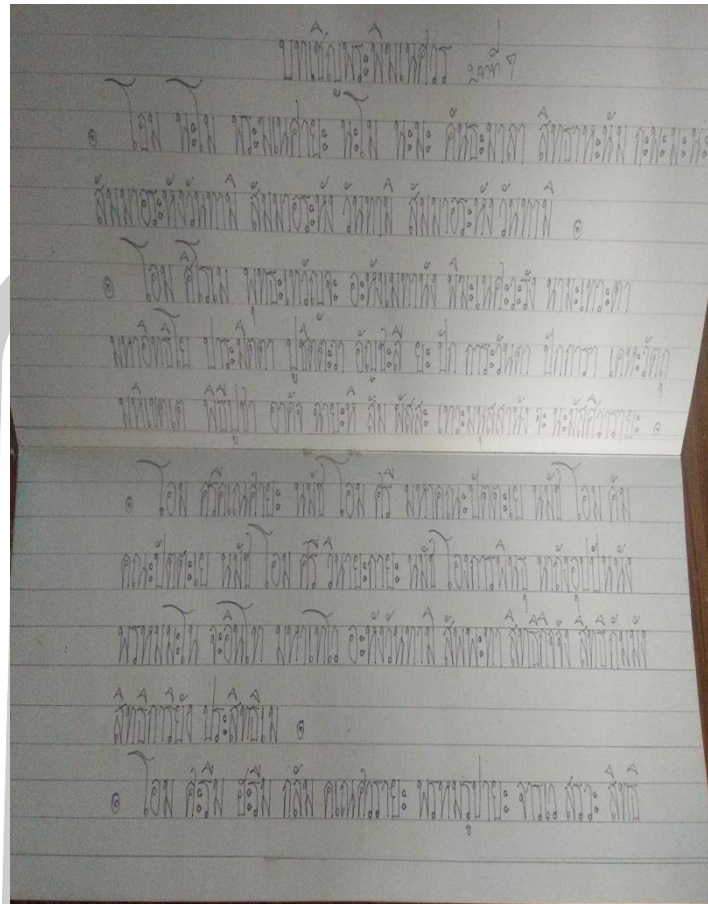 บทเชิญพระพิฆเนศวร บทที่ 7
๏ โอม นะโม พระฆเนศายะ นะโม นะมะ คันธะมาลา สิทธาหะนัม กะพะมะนะ
สัมมาอะระหังวันทามิ สัมมาอะระหัง วันทามิ สัมมาอะระหัง วันทามิ ๏
๏ โอม ศิโรเม พุทธะเทวัญจะ อะหังเมทานัง พิฆะเนศะวะรัง นามะเทวะตา
มหาอิทธิโย ประมิตตา ปูชิตัตะวา อัญชะลี ยะ ปัก การะวันตา ปักการา เคหะวัตถุ
มหิเขตเต พิธีปูชา อาคัจ ฉายะหิ สัม ผัสสะ เทวะมนุสสานัง จะ นะมัสศิวารายะ ๏
๏ โอม ศรีคเณศายะ นมัช โอม ศรี มหาคณะปัตตะเย นมัช โอม คัม
คณะปัตตะเย นมัช โอม ศรี วินายะกายะ นมัช โองการพินธุ นาถังอุปปันนัง
พรหมมะโน จะอินโท มหาเทโว อะหังวันทามิ สัพพะทา สิทธิกิจจัง สิทธิกัมมัง
สิทธิการิยัง ประสิทธิเม ๏
๏ โอม ศะรีม ฮะรีม กลัม คเณศวรายะ พรหมรูปายะ จารเว สรวะ สิทธิ